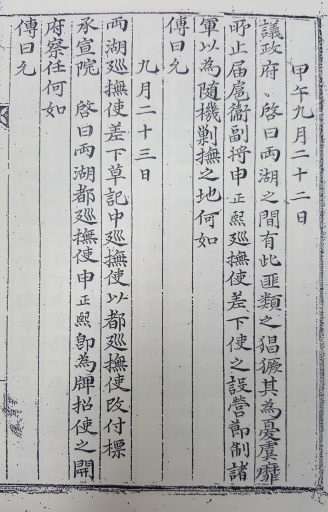 甲午九月二十二日
議政府 啓曰兩湖之間有此匪類之猖獗其爲憂虞靡
所止届扈衛副將申正熙廵撫使差下使之設營節制諸
軍以爲隨機剿撫之地何如
傳曰允
九月二十三日
兩湖廵撫使差下草記中廵撫使以都廵撫使改付標
承宣院 啓曰兩湖都廵撫使申正熙卽爲牌招使之開
府察任何如
傳曰允